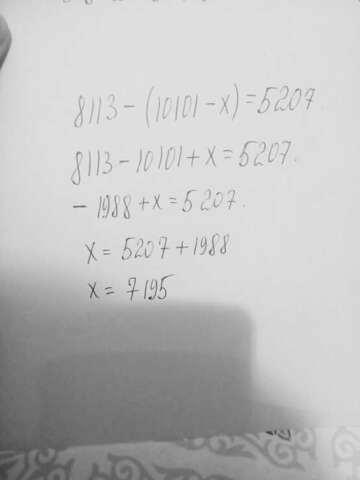 8113 - (10101 - x) = 5207
8113 - 10101 + x = 5207.
- 1988 + x = 5207.
x = 5207 + 1988
x = 7195